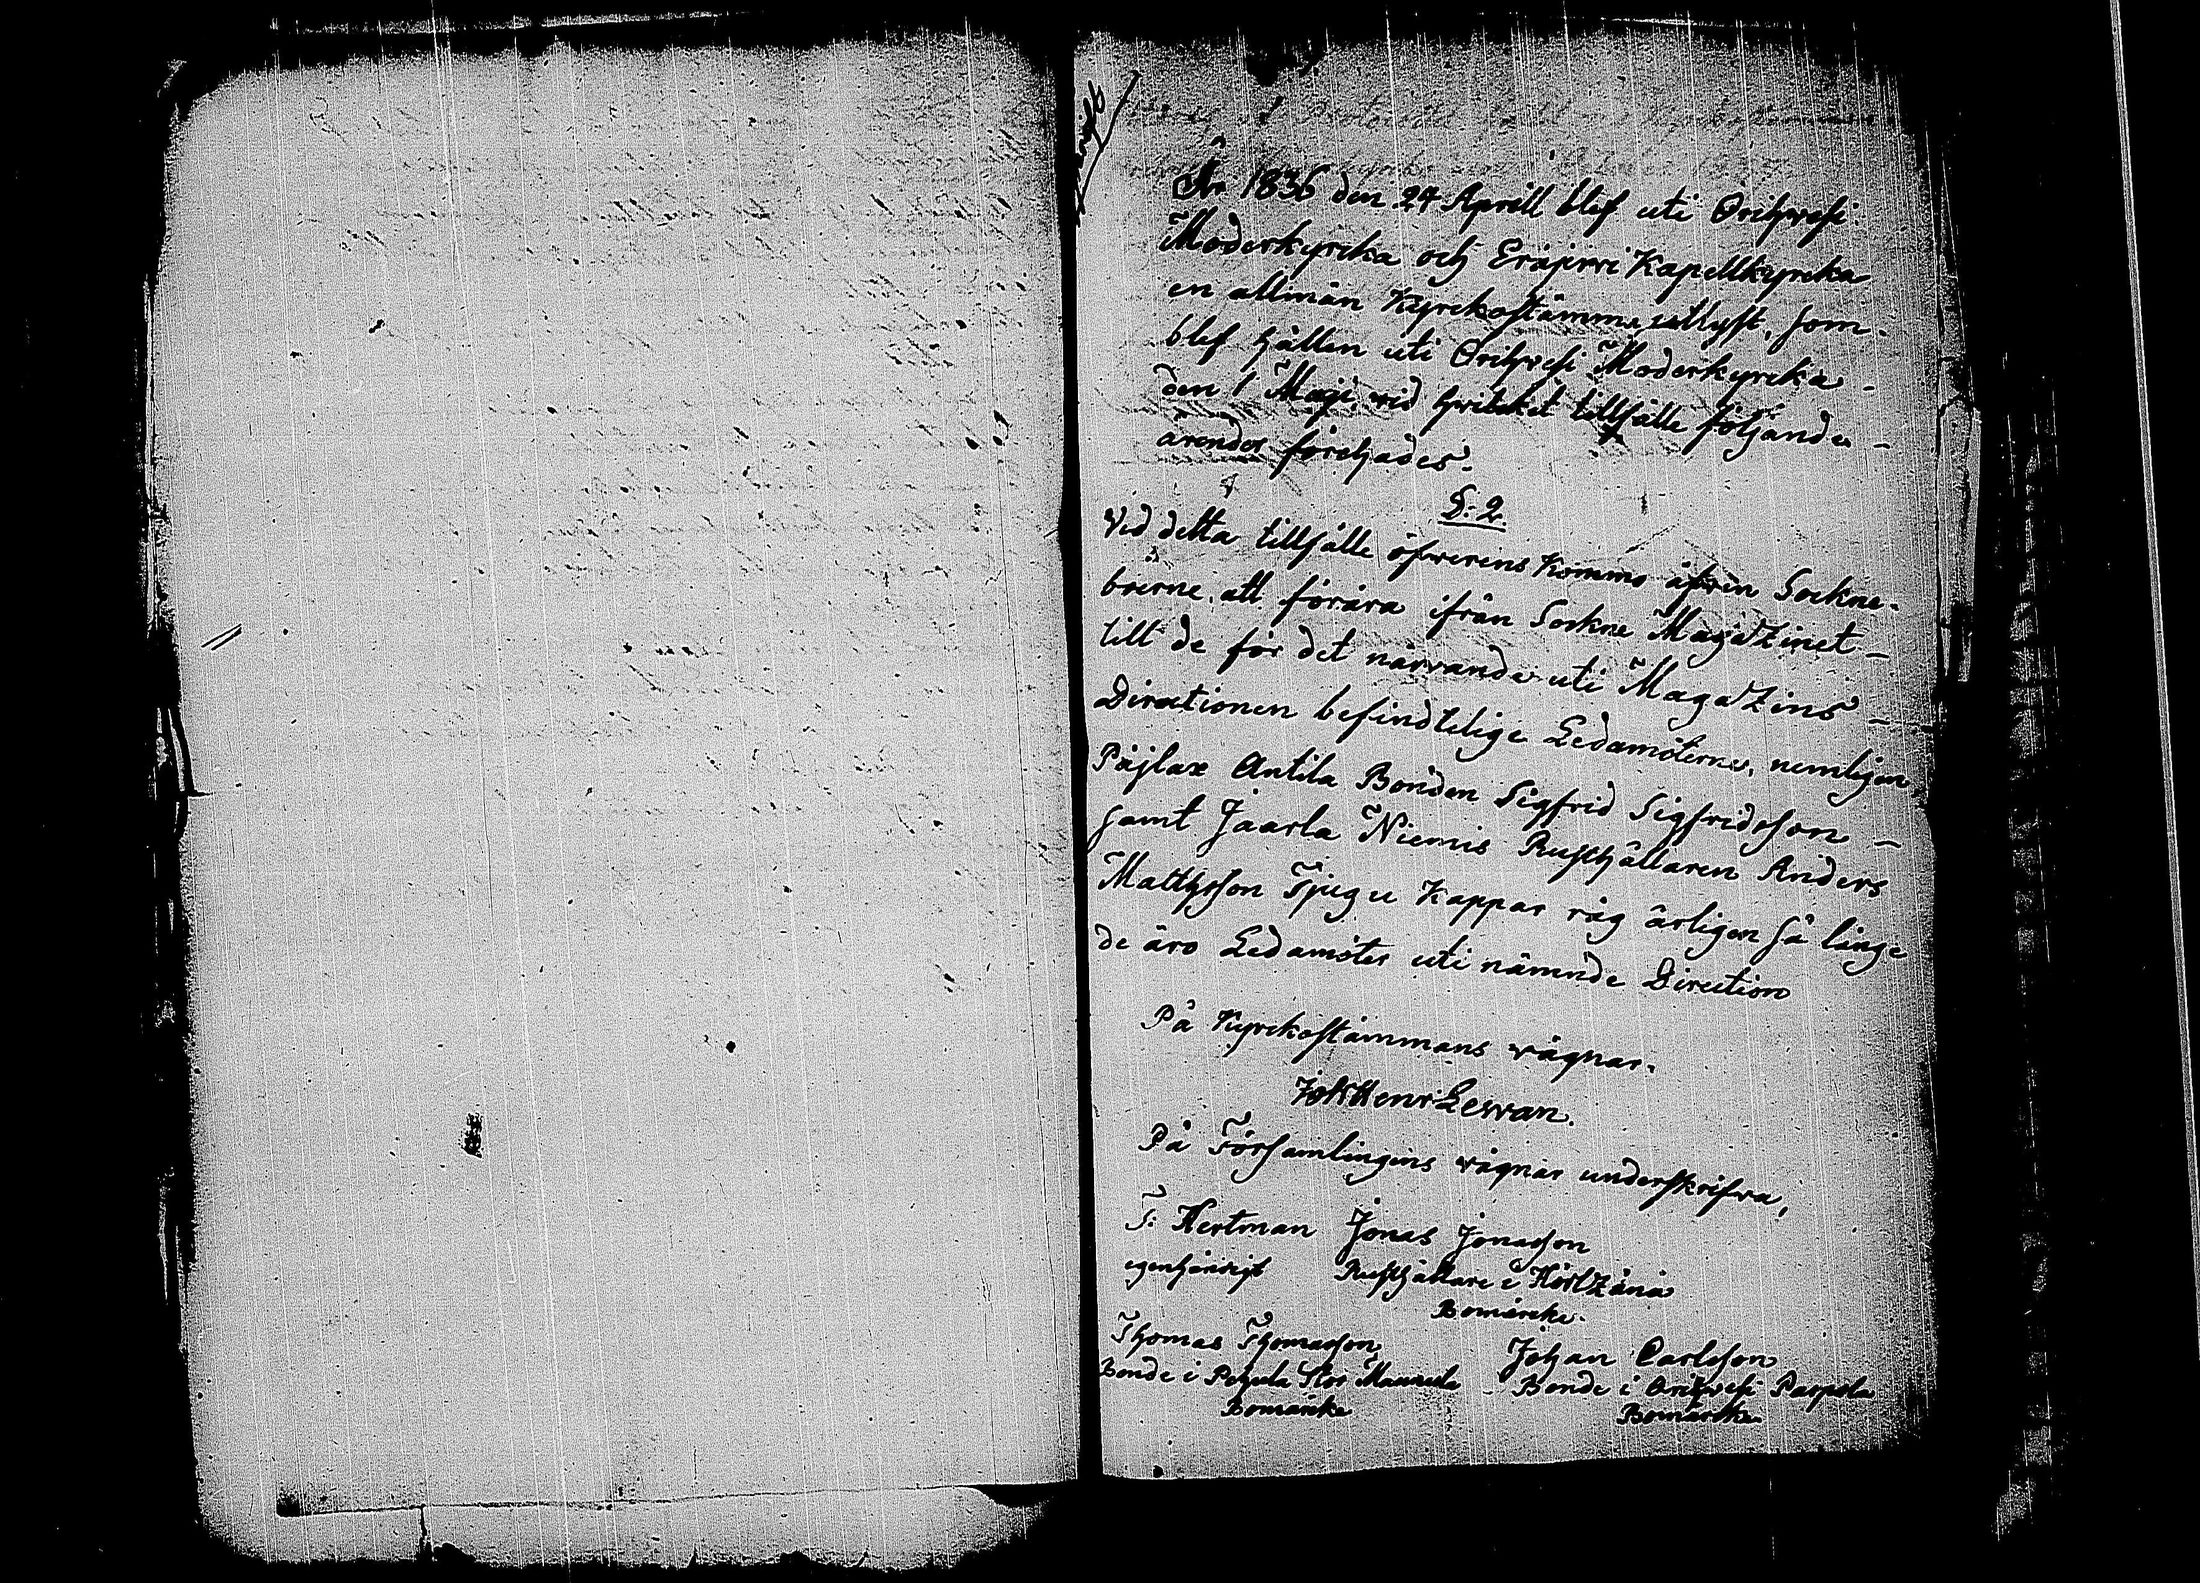 År 1836 den 24 Aprill blef uti Orihvesi
Moderkyrcka och Eräjerwi Kapellkyrcka
en allmän Kyrckostämma utlyst, som
blef hållen uti Orihvesi Moderkyrcka -
den 1 Maji, vid hvilcket tillfälle följande -
ärender förehades.
§: 2.
Vid detta tillfälle öfwerens kommo äfven Sockne-
boerne, att förära ifrån Sockne Magatzinet -
till de för det närvande uti Magatzins -
Directionen befindtelige Ledamöterne, nemligen
Päjlax Antila Bonden Sigfrid Sigfridsson -
samt Jaarla Niemis Rusthållaren Anders
Mattsson Tjugu Kappar råg årligen så länge
de äro Ledamöter uti nämnde Direction
På Kyrckostämmans vägnar.
Joh Henr Lewan.
På Församlingens vägnar underskrifva,
T. Hertman Jonas Jonasson
egenhändigt Rusthållare i
Bomärcke.
Thomas Thomasson Johan Carlsson
Bonde i Pehula Stor Maunula - Bonde i Orihvesi Parpola
Bomärcke Bomärcke